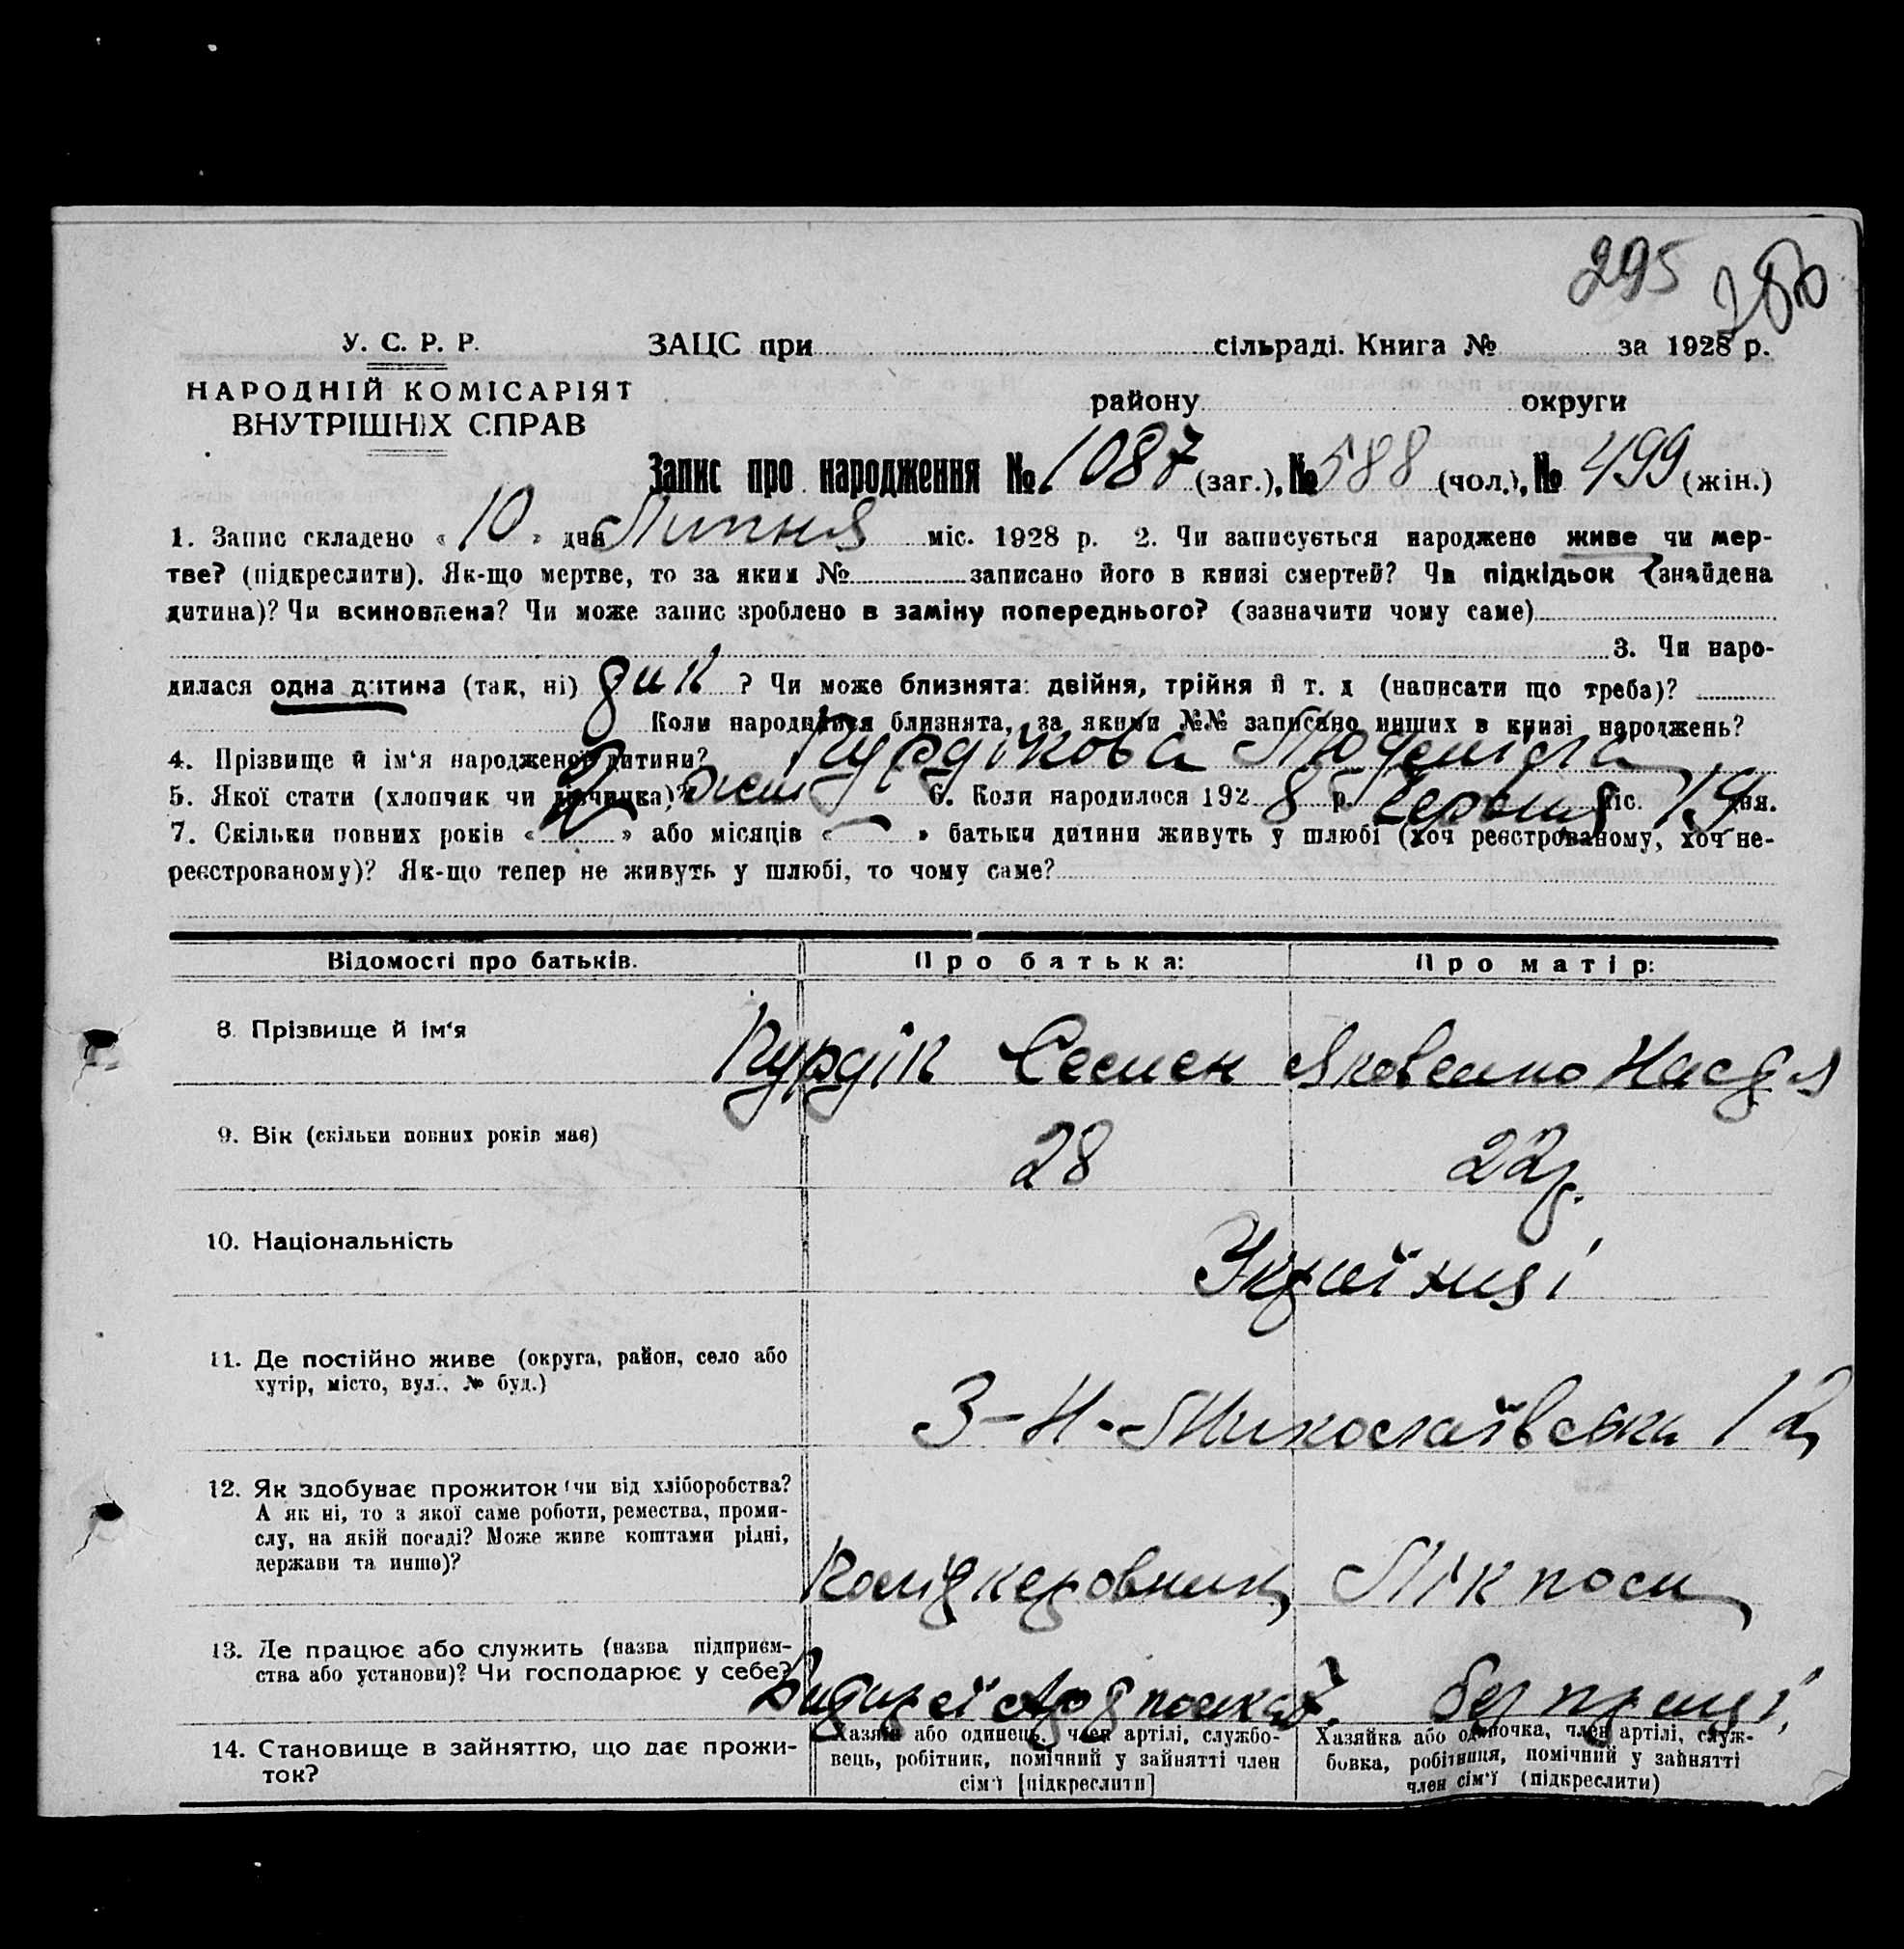 295 280
У. С. Р. Р. ЗАЦС при сільраді. Книга № за 1928 р.
НАРОДНІЙ КОМІСАРІЯТ
ВНУТРІШНІХ СПРАВ
району округи
Запис про народження № 1087 (заг.), № 588 (чол.), № 499 (жін.)
1. Запис складено « 10 » дня Липня міс. 1928 р. 2. Чи записується народжене живе чи мер-
тве? (підкреслити). Як-що мертве, то за яким № записано його в книзі смертей? Чи підкідьок (знайдена
дитина)? Чи всиновлена? Чи може запис зроблено в заміну попереднього? (зазначити чому саме)
3. Чи наро-
дилася одна дитина (так, ні) ? Чи може близнята: двійня, трійня й т. д (написати що треба)?
Коли народилися близнята, за якими №№ записано инших в книзі народжень?
4. Прізвище й ім'я народженої дитини? Курдікова Людміла
5. Якої стати (хлопчик чи дівчинка)? жін 6. Коли народилося 192 8 р. Червня міс. 19 дня.
7. Скільки повних років « 2 » або місяців « — » батьки дитини живуть у шлюбі (хоч реєстрованому, хоч не-
реєстрованому)? Як-що тепер не живуть у шлюбі, то чому саме?
Відомості про батьків. Про батька: Про матір:
8. Прізвище й ім'я Курдік Семен Яковенко Надя
9. Вік (скільки повних років має) 28 22р.
10. Національність Українці
11. Де постійно живе (округа, район, село або
хутір, місто, вул., № буд.)
З-Н-Миколаївська 12
12. Як здобуває прожиток (чи від хліборобства?
А як ні, то з якої саме роботи, ремества, проми-
слу, на якій посаді? Може живе коштами рідні,
держави та инше)?
13. Де працює або служить (назва підприєм-
ства або установи)? Чи господарює у себе?
без праці
14. Становище в зайняттю, що дає прожи-
ток?
Хазяїн або одинець, член артілі, службо-
вець, робітник, помічний у зайнятті член
сім'ї [підкреслити]
Хазяйка або одиночка, член артілі, служ-
бовка, робітниця, помічний у зайнятті
член сім'ї (підкреслити)